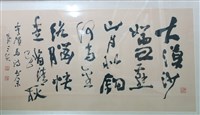 大漠沙
如雪燕
山月似鉤
何當金
絡腦快
走踏清秋